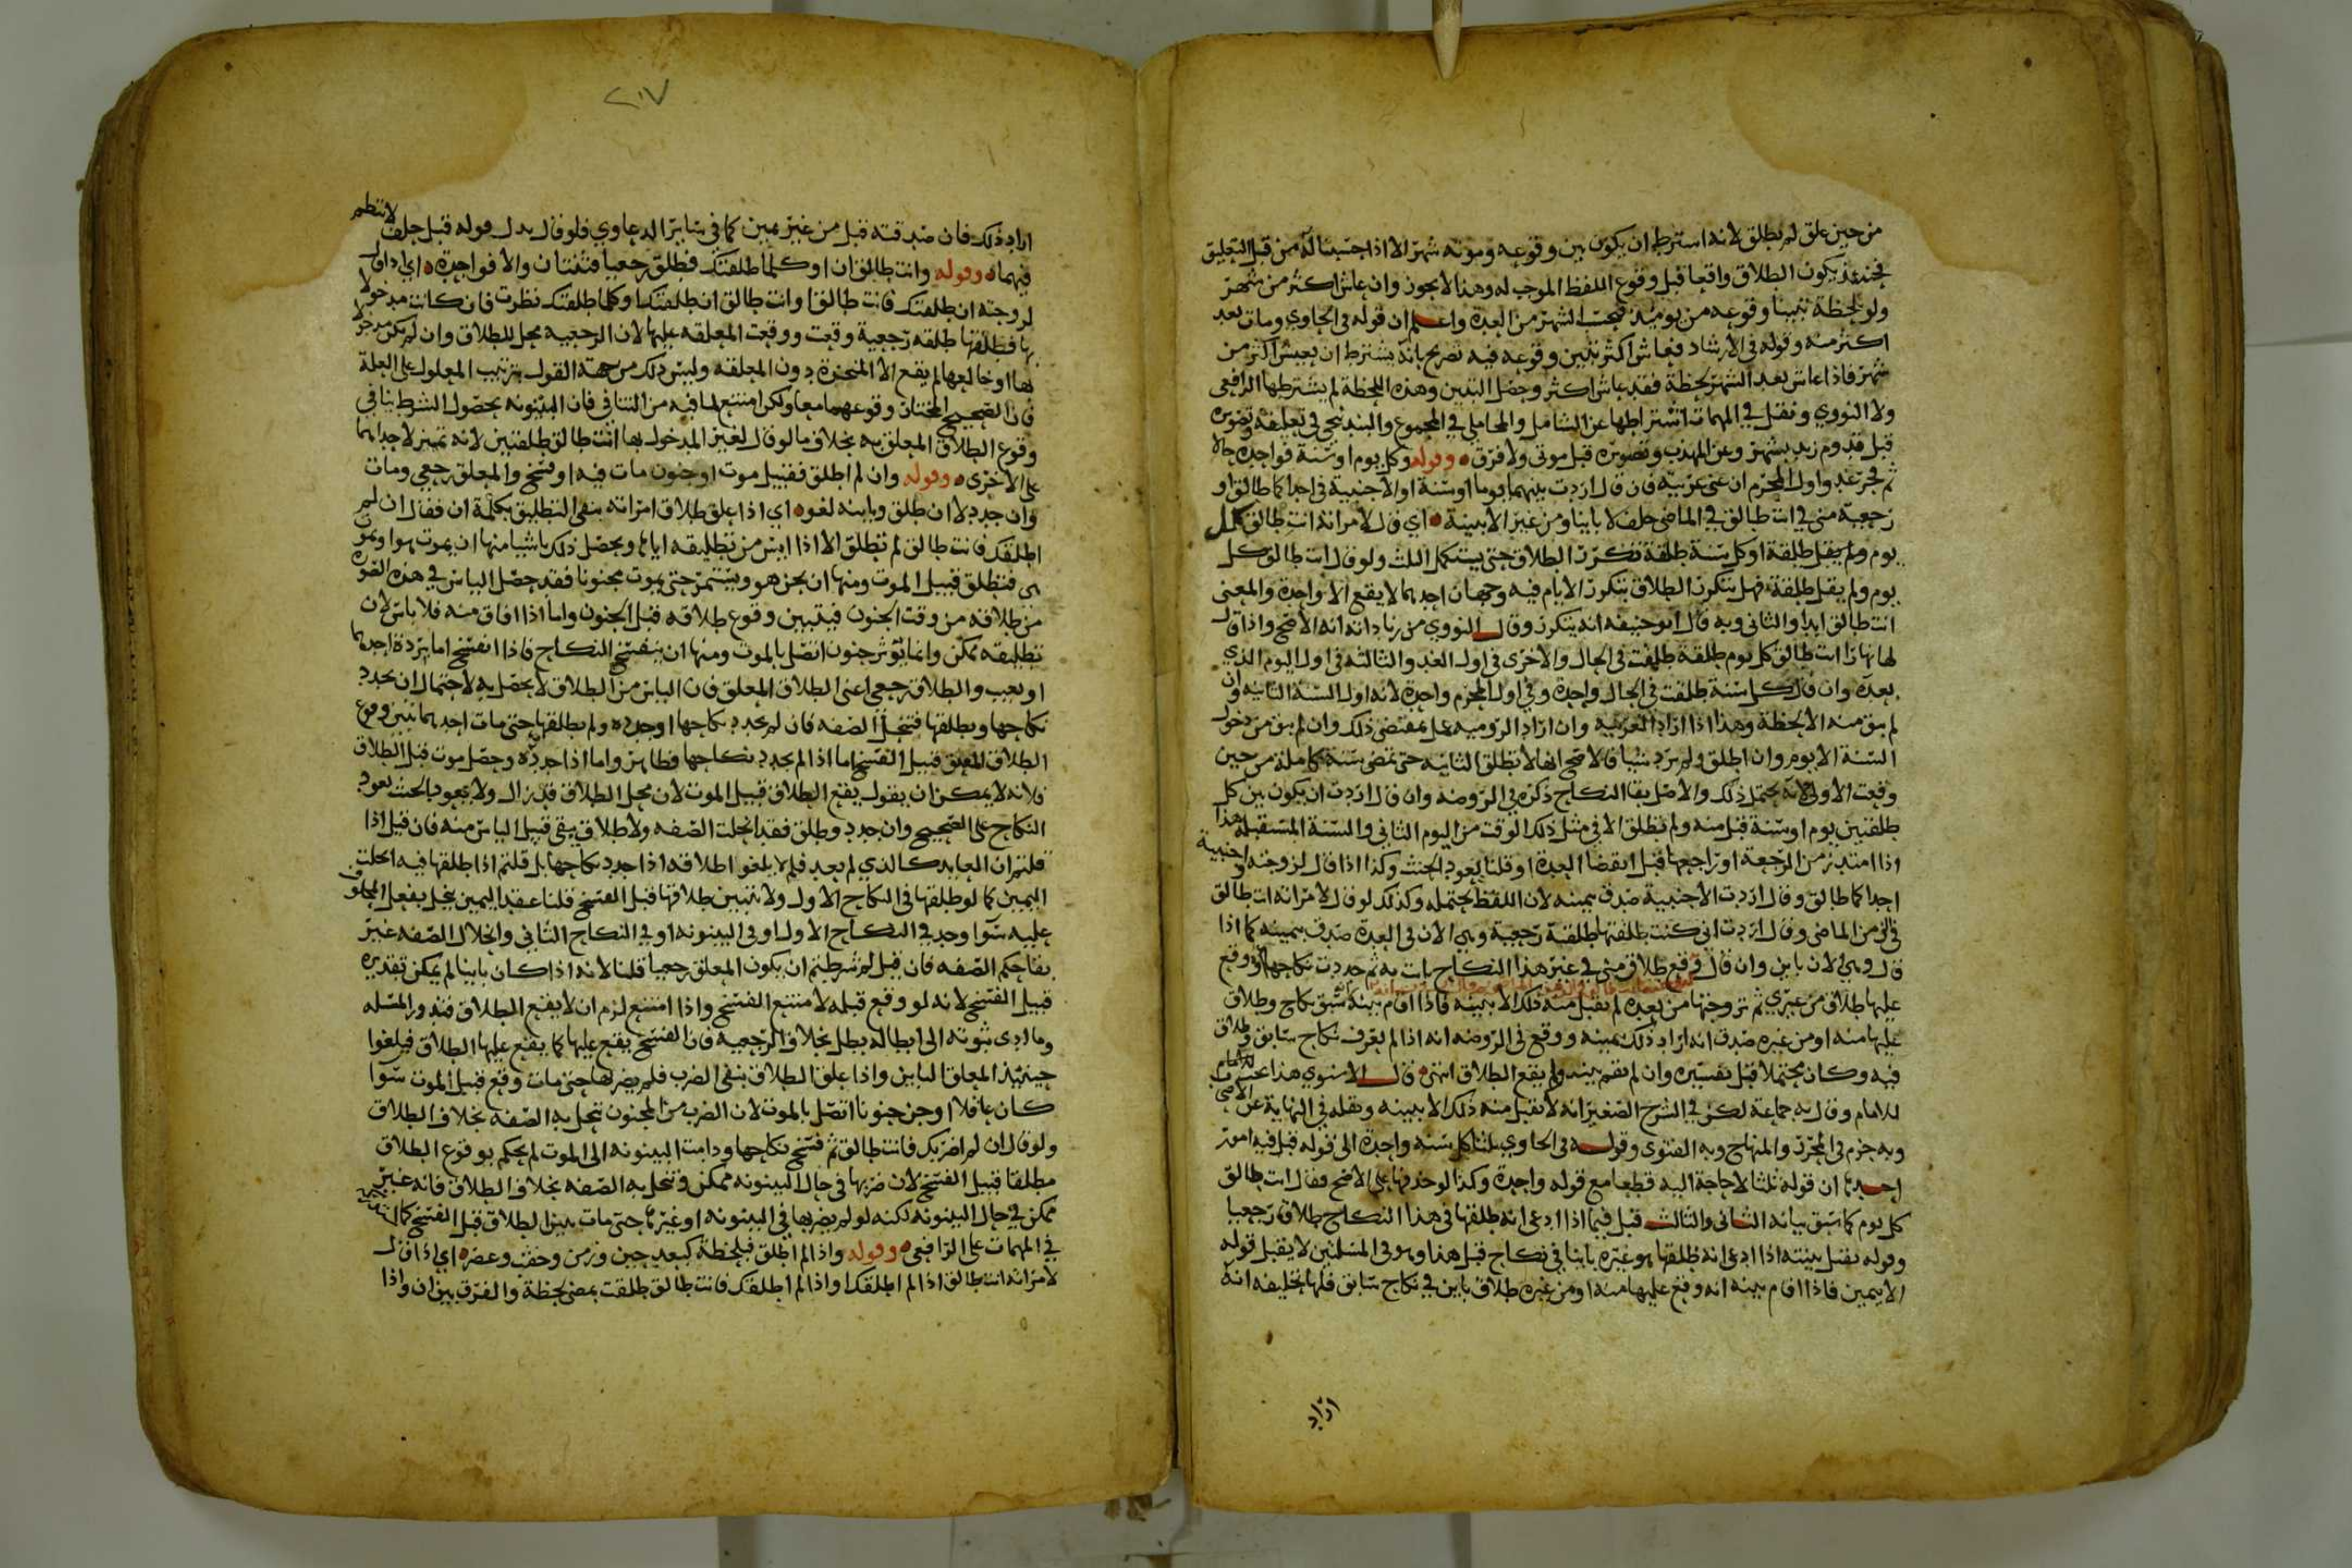 من حين علق لم تطلق لانه اشترط ان يكون بين وقوعه وموته شهر الا اذا حسبنا له من قبل التعليق
فحينئذ يكون الطلاق واقعا قبل وقوع اللفظ الموجب له وهذا لا يجوز وان عاش اكثر من شهر
ولو لحظة تبينا وقوعه من يوميذ فتحسب الشهر من العدة واعلم ان قوله في الحاوي ومات بعد
اكثر منه وقوله في الارشاد فعاش اكثر تبين وقوعه فيه تصريح بانه يشترط ان يعيش اكثر من
شهر فاذا عاش بعد الشهر لحظة فقد عاش اكثر وحصل التبين وهذه اللحظة لم يشترطها الرافعي
ولا النووي ونقل في المهمات اشتراطها عن الشامل والمحاملي في المجموع والبندنيجي في تعليقه وتصويره
قبل قدوم زيد بشهر وعن المهذب وتصويره قبل موتي ولا فرق وقوله وكل يوم او سنة فواحدة حالا
ثم فجر غد واول المحرم ان عنى عربية فان قال اردت بينهما يوما او سنة او الاجنبية في احداكما طالق او
رجعية مني في انت طالق في الماضي حلف لا باينا ومن غير الا ببينة اي قال لامراته انت طالق كل
يوم ولم يقل طلقة او كل سنة طلقة تكررت الطلاق حتى يستكمل الثلث ولو قال انت طالق كل
يوم ولم يقل طلقة فهل يتكرر الطلاق بتكرر الايام فيه وجهان احدهما لا يقع الا واحدة والمعنى
انت طالق ابدا والثاني وبه قال ابو حنيفه انه يتكرر وقال النووي من زياداته انه الاصح واذا قال
لها نهارا انت طالق كل يوم طلقة طلقت في الحال والاخرى في اول الغد والثالثه في اول اليوم الذي
بعده وان قال كل سنة طلقت في الحال واحدة وفي اول المحرم واحدة لانه اول السنة الثانيه وان
لم يبق منه الا لحظة وهذا اذا اراد العربيه وان اراد الروميه عمل بمقتضى ذلك وان لم يبق من دخول
السنة الا يوم وان اطلق ولم يرد شيا فالاصح انها لا تطلق الثانيه حتى تمضي سنة كاملة من حين
وقعت الاولى لانه يحتمل ذلك والاصل بقا النكاح ذكره في الروضه وان قال اردت ان يكون بين كل
طلقتين يوم او سنة قبل منه ولم تطلق الا في مثل ذلك الوقت من اليوم الثاني والسنة المستقبله هذا
اذا امتد زمن الرجعة او راجعها قبل انقضا العدة او قلنا بعود الحنث وكذا اذا قال لزوجته واجنبية
احداكما طالق وقال اردت الاجنبية صدق بيمينه لان اللفظ يحتمله وكذلك لو قال لامراته انت طالق
في الزمن الماضي وقال اردت اني كنت طلقتها طلقة رجعية وهي الان في العدة صدق بيمينه كما اذا
قال وهي الان باين وان قال وقع طلاق مني في غير هذا النكاح بانت به ثم جددت نكاحها او وقع
عليها طلاق من غيري ثم تزوجتها من بعده لم يقبل منه ذلك الا ببينه فاذا اقام بينة بسبق نكاح وطلاق
عليها منه او من غيره صدق انه اراد ذلك بيمينه ووقع في الروضه انه اذا لم يعرف نكاح سابق وطلاق
فيه وكان محتملا قبل تفسيره وان لم تقم بينه ولم يقع الطلاق انتهى قال الاسنوي هذا بحث
للامام وقال به جماعة لكن في الشرح الصغير انه لا يقبل منه ذلك الا ببينه ونقله في النهاية عن الاصحاب
وبه جزم في المحرر والمنهاج وبه الفتوى وقوله في الحاوي ثلثا كل سنه واحدة الى قوله قبل فيه امور
احدها ان قوله ثلثا لا حاجة اليه قطعا مع قوله واحدة وكذا لو حذفها على الاصح فقال انت طالق
كل يوم كما سبق بيانه الثاني والثالث قبل فيما اذا ادعى انه طلقها في هذا النكاح طلاق رجعيا
وقوله يقبل ببينته اذا ادعى انه طلقها هو غيره باينا في نكاح قبل هذا وهو في المسئلتين لا يقبل قوله
الا بيمين فاذا اقام بينه انه وقع عليها منه او من غيره طلاق باين في نكاح سابق فلها تحليفه انه
اراد
اراد ذلك فان صدقته قبل من غير يمين كما في ساير الدعاوي فلو قال بدل قوله قبل حلف لانتظم
فيهما وقوله وانت طالق ان او كلما طلقتك فطلق رجعيا فثنتان والا فواحدة اي اذا قال
لزوجته ان طلقتك فانت طالق او انت طالق ان طلقتك او كلما طلقتك نظرت فان كانت مدخولا
بها فطلقها طلقه رجعية وقعت ووقعت المعلقه عليها لان الرجعيه محل للطلاق وان لم يكن مدخولا
بها او خالعها لم يقع الا المنجزة دون المعلقه وليس ذلك من جهة القول بترتيب المعلول على العلة
فان الصحيح المختار وقوعهما معا ولكن امتنع لما فيه من التنافي فان البينونه بحصول الشرط ينافي
وقوع الطلاق المعلق به بخلاف ما لو قال لغير المدخول بها انت طالق طلقتين لانه تميز لاحداهما
على الاخرى وقوله وان لم اطلق فقبيل موت او جنون مات فيه او فسخ والمعلق رجعي ومات
وان جدد لا ان طلق وباينه لغو اي اذا علق طلاق امراته بنفي التطليق بكلمة ان فقال ان لم
اطلقك فانت طالق لم تطلق الا اذا ايس من تطليقه اياها ويحصل ذلك باشيا منها ان يموت هو او تموت
هي فتطلق قبيل الموت ومنها ان يجن هو ويستمر حتى يموت مجنونا فقد حصل الياس في هذه الصورة
من طلاقه من وقت الجنون فيتبين وقوع طلاقه قبل الجنون واما اذا افاق منه فلا باس لان
تطليقه ممكن وانما يؤثر جنون اتصل بالموت ومنها ان ينفسخ النكاح فاذا انفسخ اما بردة احدهما
او بعيب والطلاق رجعي اعني الطلاق المعلق فان الياس من الطلاق لا يحصل به لاحتمال ان يجدد
نكاحها ويطلقها فتنحل الصفه فان لم يجدد نكاحها او جدده ولم يطلقها حتى مات احدهما تبين وقوع
الطلاق المعلق قبيل الفسخ اما اذا لم يجدد نكاحها فظاهر واما اذا جدده وحصل موت قبل الطلاق
فلانه لا يمكن ان يقول يقع الطلاق قبيل الموت لان محل الطلاق قد زال ولا يعود بالحنث بعود
النكاح على الصحيح وان جدد وطلق فقد انحلت الصفه ولا طلاق يبقى قبيل الياس منه فان قيل اذا
قلتم ان العايد كالذي لم يعد فلم لا يلغوا طلاقه اذا جدد نكاحها بل قلتم اذا طلقها فيه انحلت
اليمين كما لو طلقها في النكاح الاول ولا تتبين طلاقها قبل الفسخ قلنا عقد اليمين ينحل بفعل المحلوف
عليه سوا وجد في النكاح الاول او في البينونه او في النكاح الثاني وانحلال الصفه غير
بقا حكم الصفه فان قيل لم شرطتم ان يكون المعلق رجعيا قلنا لانه اذا كان باينا لم يمكن تقديره
قبيل الفسخ لانه لو وقع قبله لامتنع الفسخ واذا امتنع لزم ان لا يقع الطلاق فتدور المسله
وما ادى ثبوته الى ابطاله بطل بخلاف الرجعيه فان الفسخ يقع عليها كما يقع عليها الطلاق فيلغوا
حينئذ المعلق الباين واذا علق الطلاق بنفي الضرب فلم يضربها حتى مات وقع قبيل الموت سوا
كان عاقلا او جن جنونا اتصل بالموت لان الضرب من المجنون تنحل به الصفه بخلاف الطلاق
ولو قال ان لم اضربك فانت طالق ثم فسخ نكاحها ودامت البينونه الى الموت لم يحكم بوقوع الطلاق
مطلقا قبيل الفسخ لان ضربها في حال البينونه ممكن وتنحل به الصفه بخلاف الطلاق فانه غير
ممكن في حال البينونه لكنه لو لم يضربها في البينونه او غيرها حتى مات تبين الطلاق قبل الفسخ كما
في المهمات على الرافعي وقوله واذا لم اطلق فبلحظة كبعد حين وزمن وحقب وعصر اي اذا قال
لامراته انت طالق اذا لم اطلقك او اذا لم اطلقك فانت طالق طلقت بمضي لحظة والفرق بين ان واذا